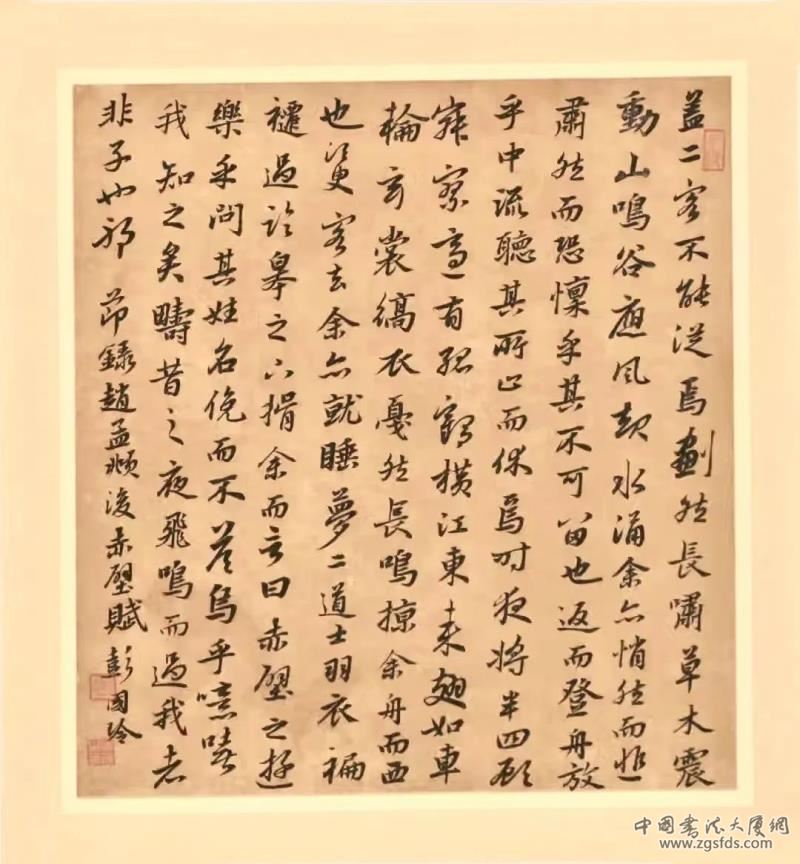 盖二客不能從焉劃然長嘯草木震
動山鳴谷應風起水涌余亦悄然而悲
肅然而恐懍乎其不可留也返而登舟放
乎中流聽其所止而休焉時夜將半四顧
寂寥適有孤鶴橫江東來翅如車
輪玄裳縞衣戛然長鳴掠余舟而西
也須臾客去余亦就睡夢二道士羽衣褊
褼過臨皋之下揖余而言曰赤壁之遊
樂乎問其姓名俛而不答烏乎噫嘻
我知之矣疇昔之夜飛鳴而過我者
非子也邪 節錄趙孟頫後赤壁賦 彭國玲
中國書法大廈網
www.zgsfds.com